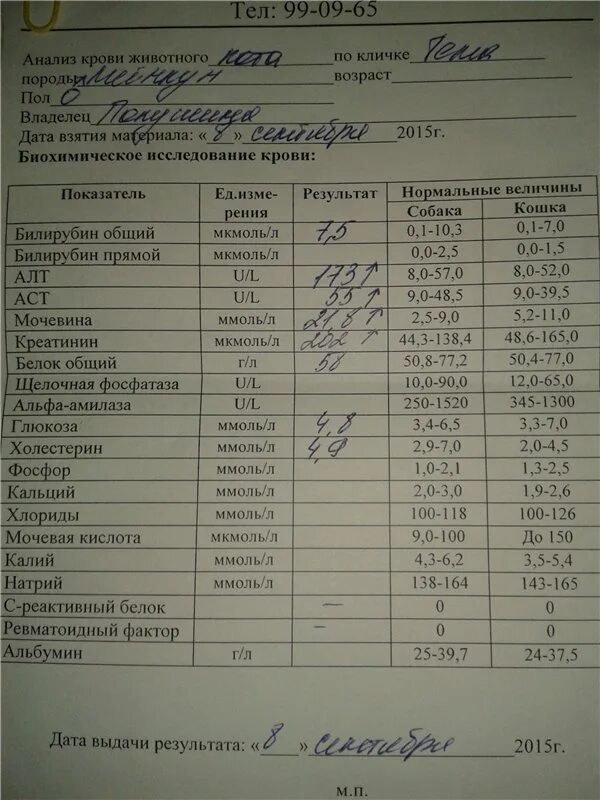 Тел: 99-09-65
Анализ крови животного кота по кличке Тема
породы Мейнкун возраст
Пол
Владелец
Дата взятия материала: «8» сентября 2015г.
Биохимическое исследование крови:
Показатель Ед.измерения Результат Нормальные величины
Собака Кошка
Билирубин общий мкмоль/л 7,5 0,1-10,3 0,1-7,0
Билирубин прямой мкмоль/л 0,0-2,5 0,0-1,5
АЛТ U/L 173↑ 8,0-57,0 8,0-52,0
АСТ U/L 55↑ 9,0-48,5 9,0-39,5
Мочевина ммоль/л 21,8↑ 2,5-9,0 5,2-11,0
Креатинин мкмоль/л 202↑ 44,3-138,4 48,6-165,0
Белок общий г/л 58 50,8-77,2 50,4-77,0
Щелочная фосфатаза U/L 10,0-90,0 12,0-65,0
Альфа-амилаза U/L 250-1520 345-1300
Глюкоза ммоль/л 4,8 3,4-6,5 3,3-7,0
Холестерин ммоль/л 4,9 2,9-7,0 2,0-4,5
Фосфор ммоль/л 1,0-2,1 1,3-2,5
Кальций ммоль/л 2,0-3,0 1,9-2,6
Хлориды ммоль/л 100-118 100-126
Мочевая кислота мкмоль/л 9,0-100 До 150
Калий ммоль/л 4,3-6,2 3,5-5,4
Натрий ммоль/л 138-164 143-165
С-реактивный белок — 0 0
Ревматоидный фактор – 0 0
Альбумин г/л 25-39,7 24-37,5
Дата выдачи результата: «8» сентября 2015г.
М.П.